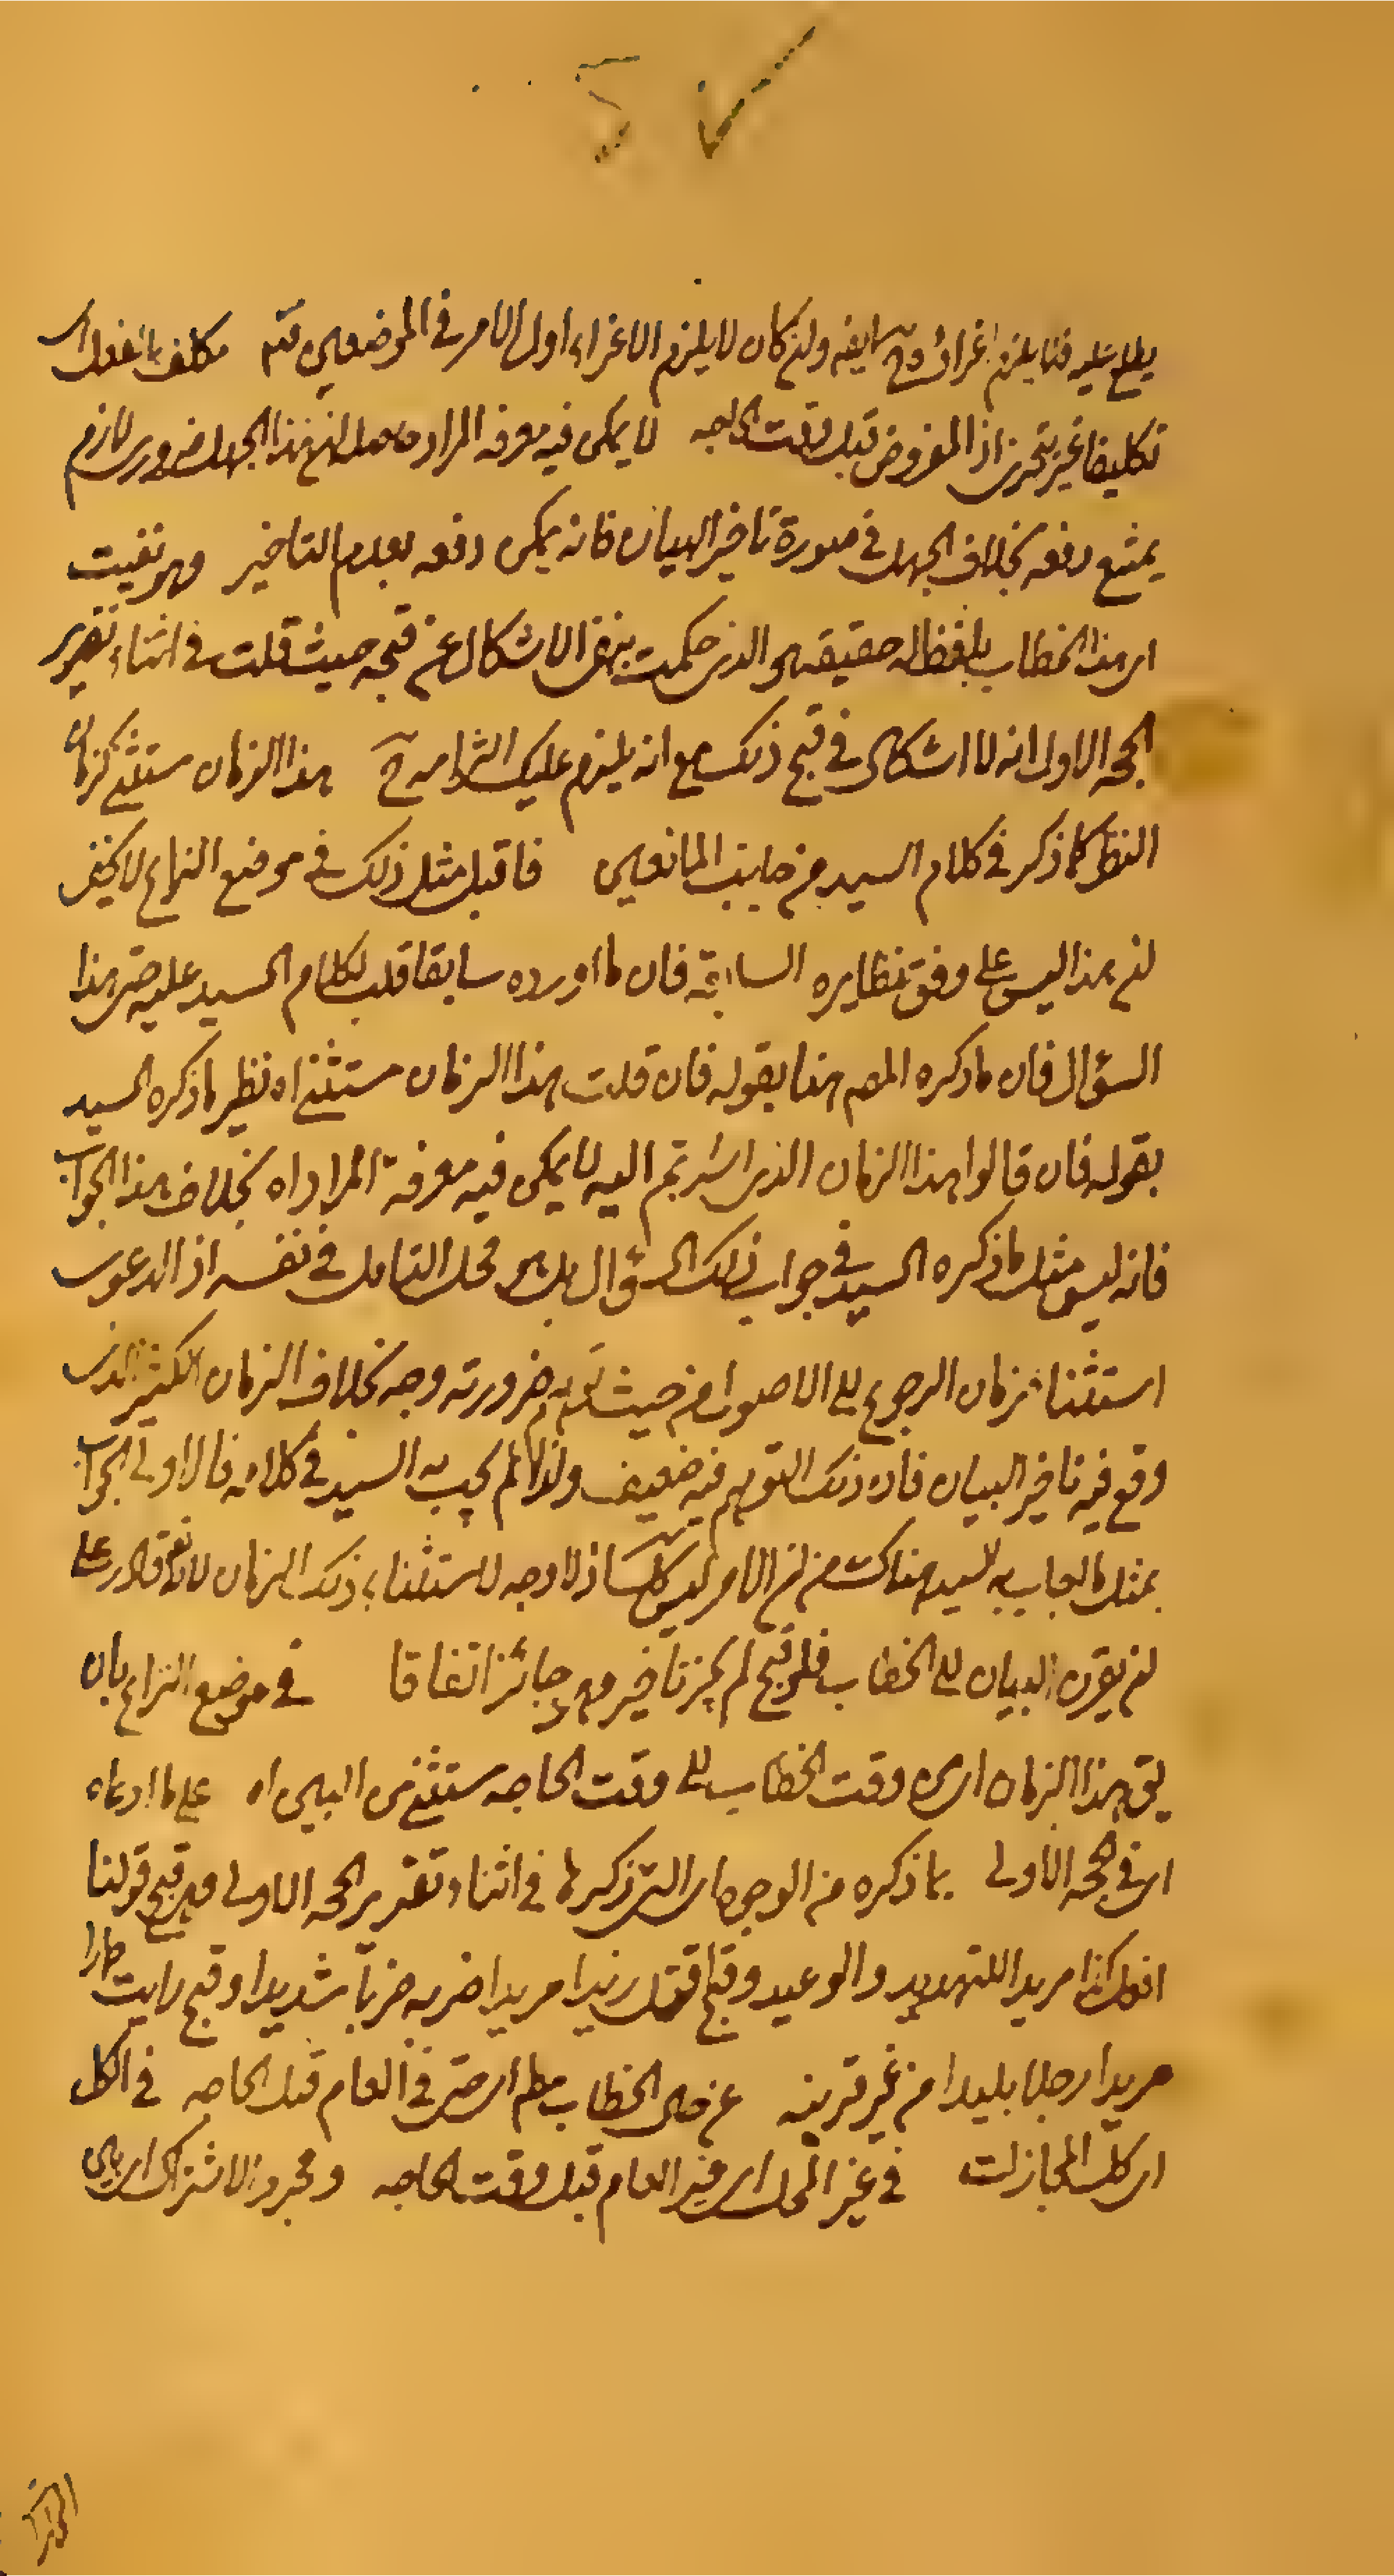 يطلع عليه فلا يلزم اغراء وان كان لا يلزم الاغراء اول الامر في الموضعين فته مكلف بالفعل اى
تكليفا غير تنجزى اذ المفروض قبل وقت الحاجه لا يمكن فيه معرفه المراد حاصله ان هذا الجهل ضرورى لازم
يمتنع دفعه بخلاف الجهل في صورة تاخير البيان فانه يمكن دفعه بعدم التاخير وهو نفيت
اى هذا الخطاب بلفظ له حقيقه هو الذى حكمت بنفى الاشكال عن قبحه حيث قلت في اثناء تقرير
الحجه الاولى انه لا اشكال في قبح ذلك مع انه يلزم عليك التزامه ح هذا الزمان مستثنى كزمان
النظر كما ذكر في كلام السيد من جانب المانعين فاقبل مثل ذلك في موضع النزاع لا يخفى
ان هذا ليس على وفق نظايره السابقة فان ما اورده سابقا قلب لكلام السيد عليه حتى هذا
السؤال فان ما ذكره المص هنا بقوله فان قلت هذا الزمان مستثنى اه نظير ما ذكره السيد
بقوله فان قالوا هذا الزمان الذى اشرتم اليه لا يمكن فيه معرفة المراد اه بخلاف هذا الجواب
فانه ليس مثل ما ذكره السيد في جواب ذلك السؤال بل هو محل التامل في نفسه اذ الدعوى
استثناء زمان الرجوع الى الاصول من حيث توهم ضرورته وجه بخلاف الزمان الكثير الذى
وقع فيه تاخير البيان فان ذلك التوهم فيه ضعيف ولذا لم يجب به السيد في كلامه فالاولى الجواب
بمثل ما اجاب به السيد هناك من ان الامر ليس كك اذ لا وجه لاستثناء ذلك الزمان لانه تع قادر على
ان يقرن البيان الى الخطاب فلو قبح لم يجز تاخيره وهو جائز اتفاقا في موضع النزاع بان
يق هذا الزمان اى من وقت الخطاب الى وقت الحاجه مستثنى من البين اه على ما ادعاه
اى في الحجه الاولى بما ذكره من الوجوه اى التى ذكرها في اثناء تقرير الحجه الاولى من قبح قولنا
افعل كذا مريدا للتهديد والوعيد وقبح اقتل زيدا مريدا اضربه ضربا شديدا وقبح رايت حمارا
مريدا رجلا بليدا من غير قرينه عن حد الخطاب مطم اى حتى في العام قبل الحاجه في الكل
اى كل المجازات في غير المحل اى غير العام قبل وقت الحاجه ومجرد الاشتراك اى بين